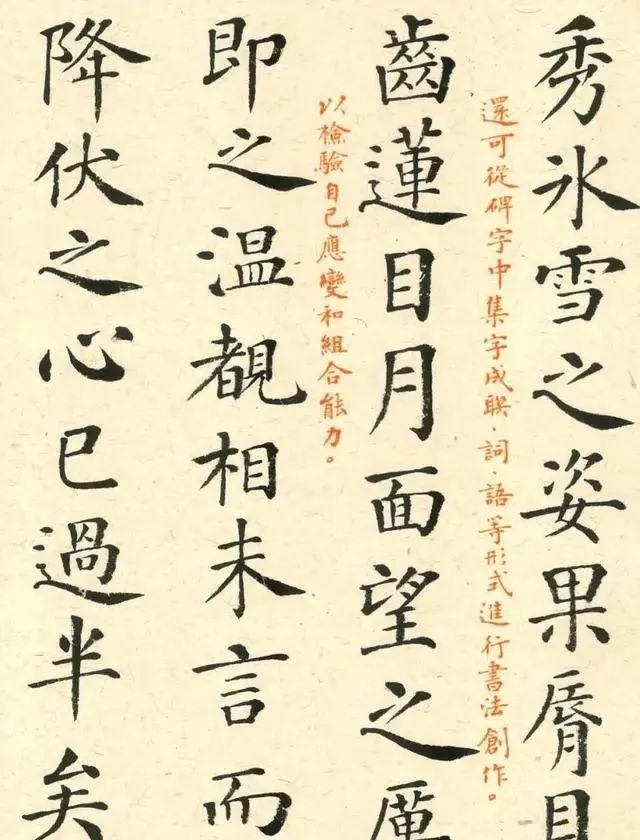 秀氷雪之姿果脣貝
還可從碑字中集字成聯、詞、語等形式進行書法創作。
齒蓮目月面望之厲
以檢驗自己應變和組合能力。
即之温覩相未言而
降伏之心已過半矣